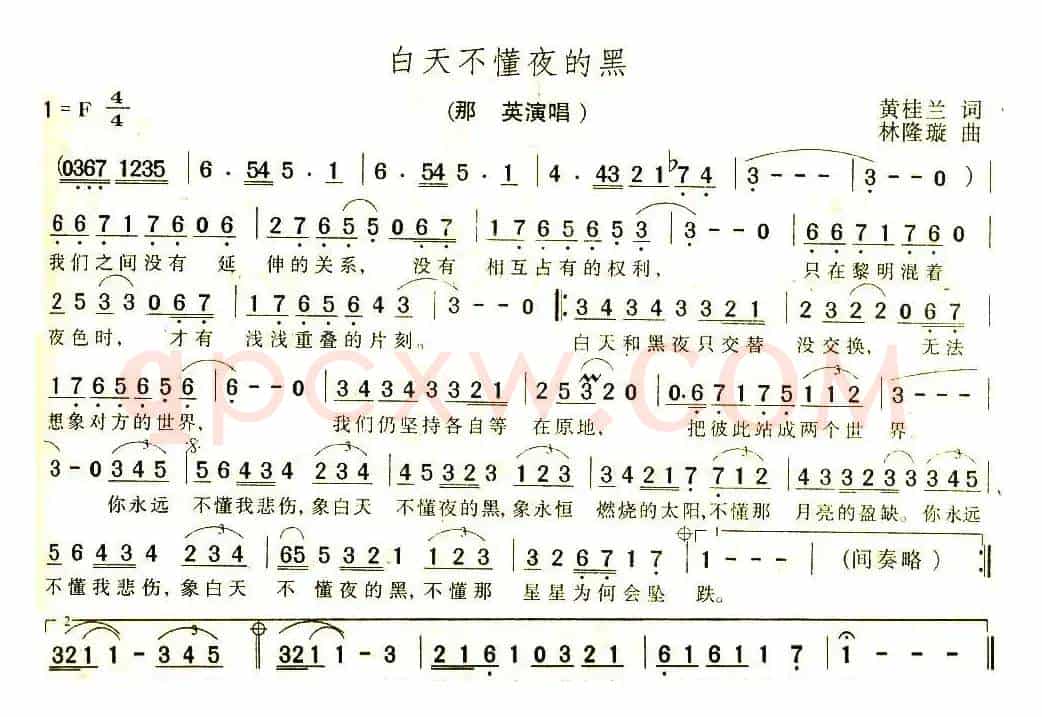 白天不懂夜的黑
1 = F 4/4
(那 英演唱)
黄桂兰 词
林隆璇 曲
(0367 1235 | 6 · 54 5 · 1 | 6 · 54 5 · 1 | 4 · 43 2 1 ♭7 4 | 3 - - - | 3 - - 0 ) |
6 6 7 1 7 6 0 6 | 2 7 6 5 5 0 6 7 | 1 7 6 5 6 5 3 | 3 - - 0 | 6 6 7 1 7 6 0 |
我们之间没有 延 伸的关系, 没有 相互占有的权利, 只在黎明混着
2 5 3 3 0 6 7 | 1 7 6 5 6 4 3 | 3 - - 0 ‖: 3 4 3 4 3 3 2 1 | 2 3 2 2 0 6 7 |
夜色时, 才有 浅浅重叠的片刻。 白天和黑夜只交替 没交换, 无法
1 7 6 5 6 5 6 | 6 - - 0 | 3 4 3 4 3 3 2 1 | 2 5 3 2 0 | 0 · 6 7 1 7 5 1 1 2 | 3 - - - |
想象对方的世界, 我们仍坚持各自等 在原地, 把彼此站成两个世 界
3 - 0 3 4 5 | 5 6 4 3 4 2 3 4 | 4 5 3 2 3 1 2 3 | 3 4 2 1 7 7 1 2 | 3 2 3 3 2 3 3 4 5 |
你永远 不懂我悲伤,象白天 不懂夜的黑,象永恒 燃烧的太阳,不懂那 月亮的盈缺。你永远
5 6 4 3 4 2 3 4 | 65 5 3 2 1 1 2 3 | 3 2 6 7 1 7 | 1 - - | (间奏略) :‖
不懂我悲伤,象白天 不 懂夜的黑,不懂那 星星为何会坠 跌。
3 2 1 1 - 3 4 5 ‖ 3 2 1 1 - 3 | 2 1 6 1 0 3 2 1 | 6 1 6 1 1 7 | 1 - - - ‖
qpcxw.com